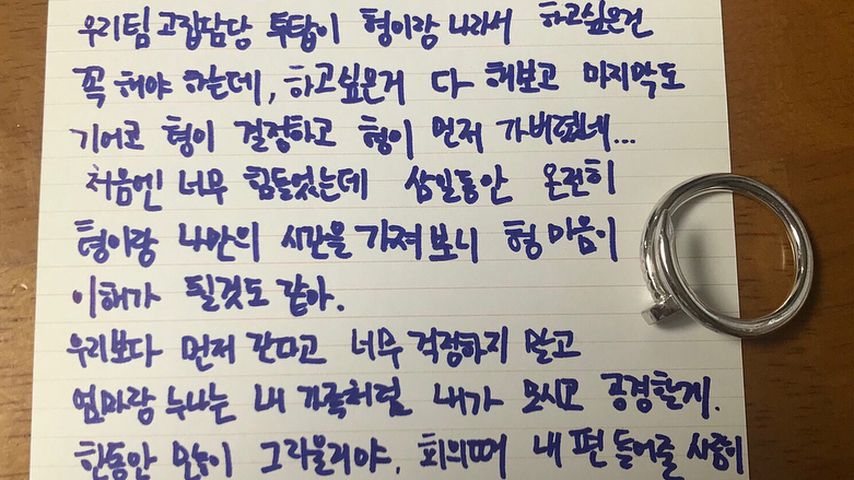 우리팀 고집담당 투탑이 형이랑 나라서 하고싶은건
꼭 해야 하는데, 하고싶은거 다 해보고 마지막도
기어코 형이 결정하고 형이 먼저 가버렸네...
처음엔 너무 힘들었는데 삼일동안 온전히
형이랑 나만의 시간을 가져보니 형 마음이
이해가 될것도 같아.
우리보다 먼저 간다고 너무 걱정하지 말고
엄마랑 누나는 내 가족처럼 내가 모시고 공경할게.
한동안 많이 그리울거야. 회의때 내 편 들어줄 사람이